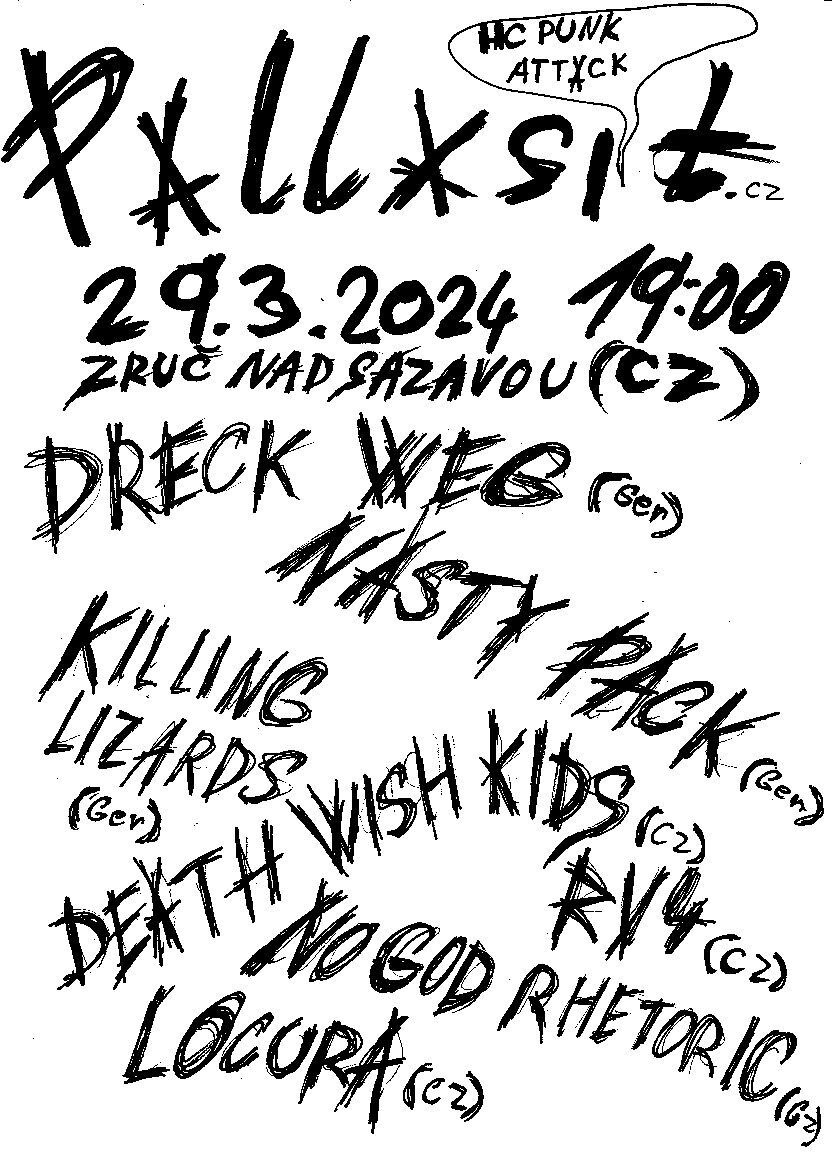 HC PUNK
ATTACK
PALLASIT.CZ
29.3.2024 19:00
ZRUČ NAD SAZAVOU (CZ)
DRECK WEG (Ger)
NASTY PACK (Ger)
KILLING
LIZARDS
(Ger)
DEATH WISH KIDS (CZ)
RV4 (CZ)
NO GOD RHETORIC (CZ)
LOCURA (CZ)